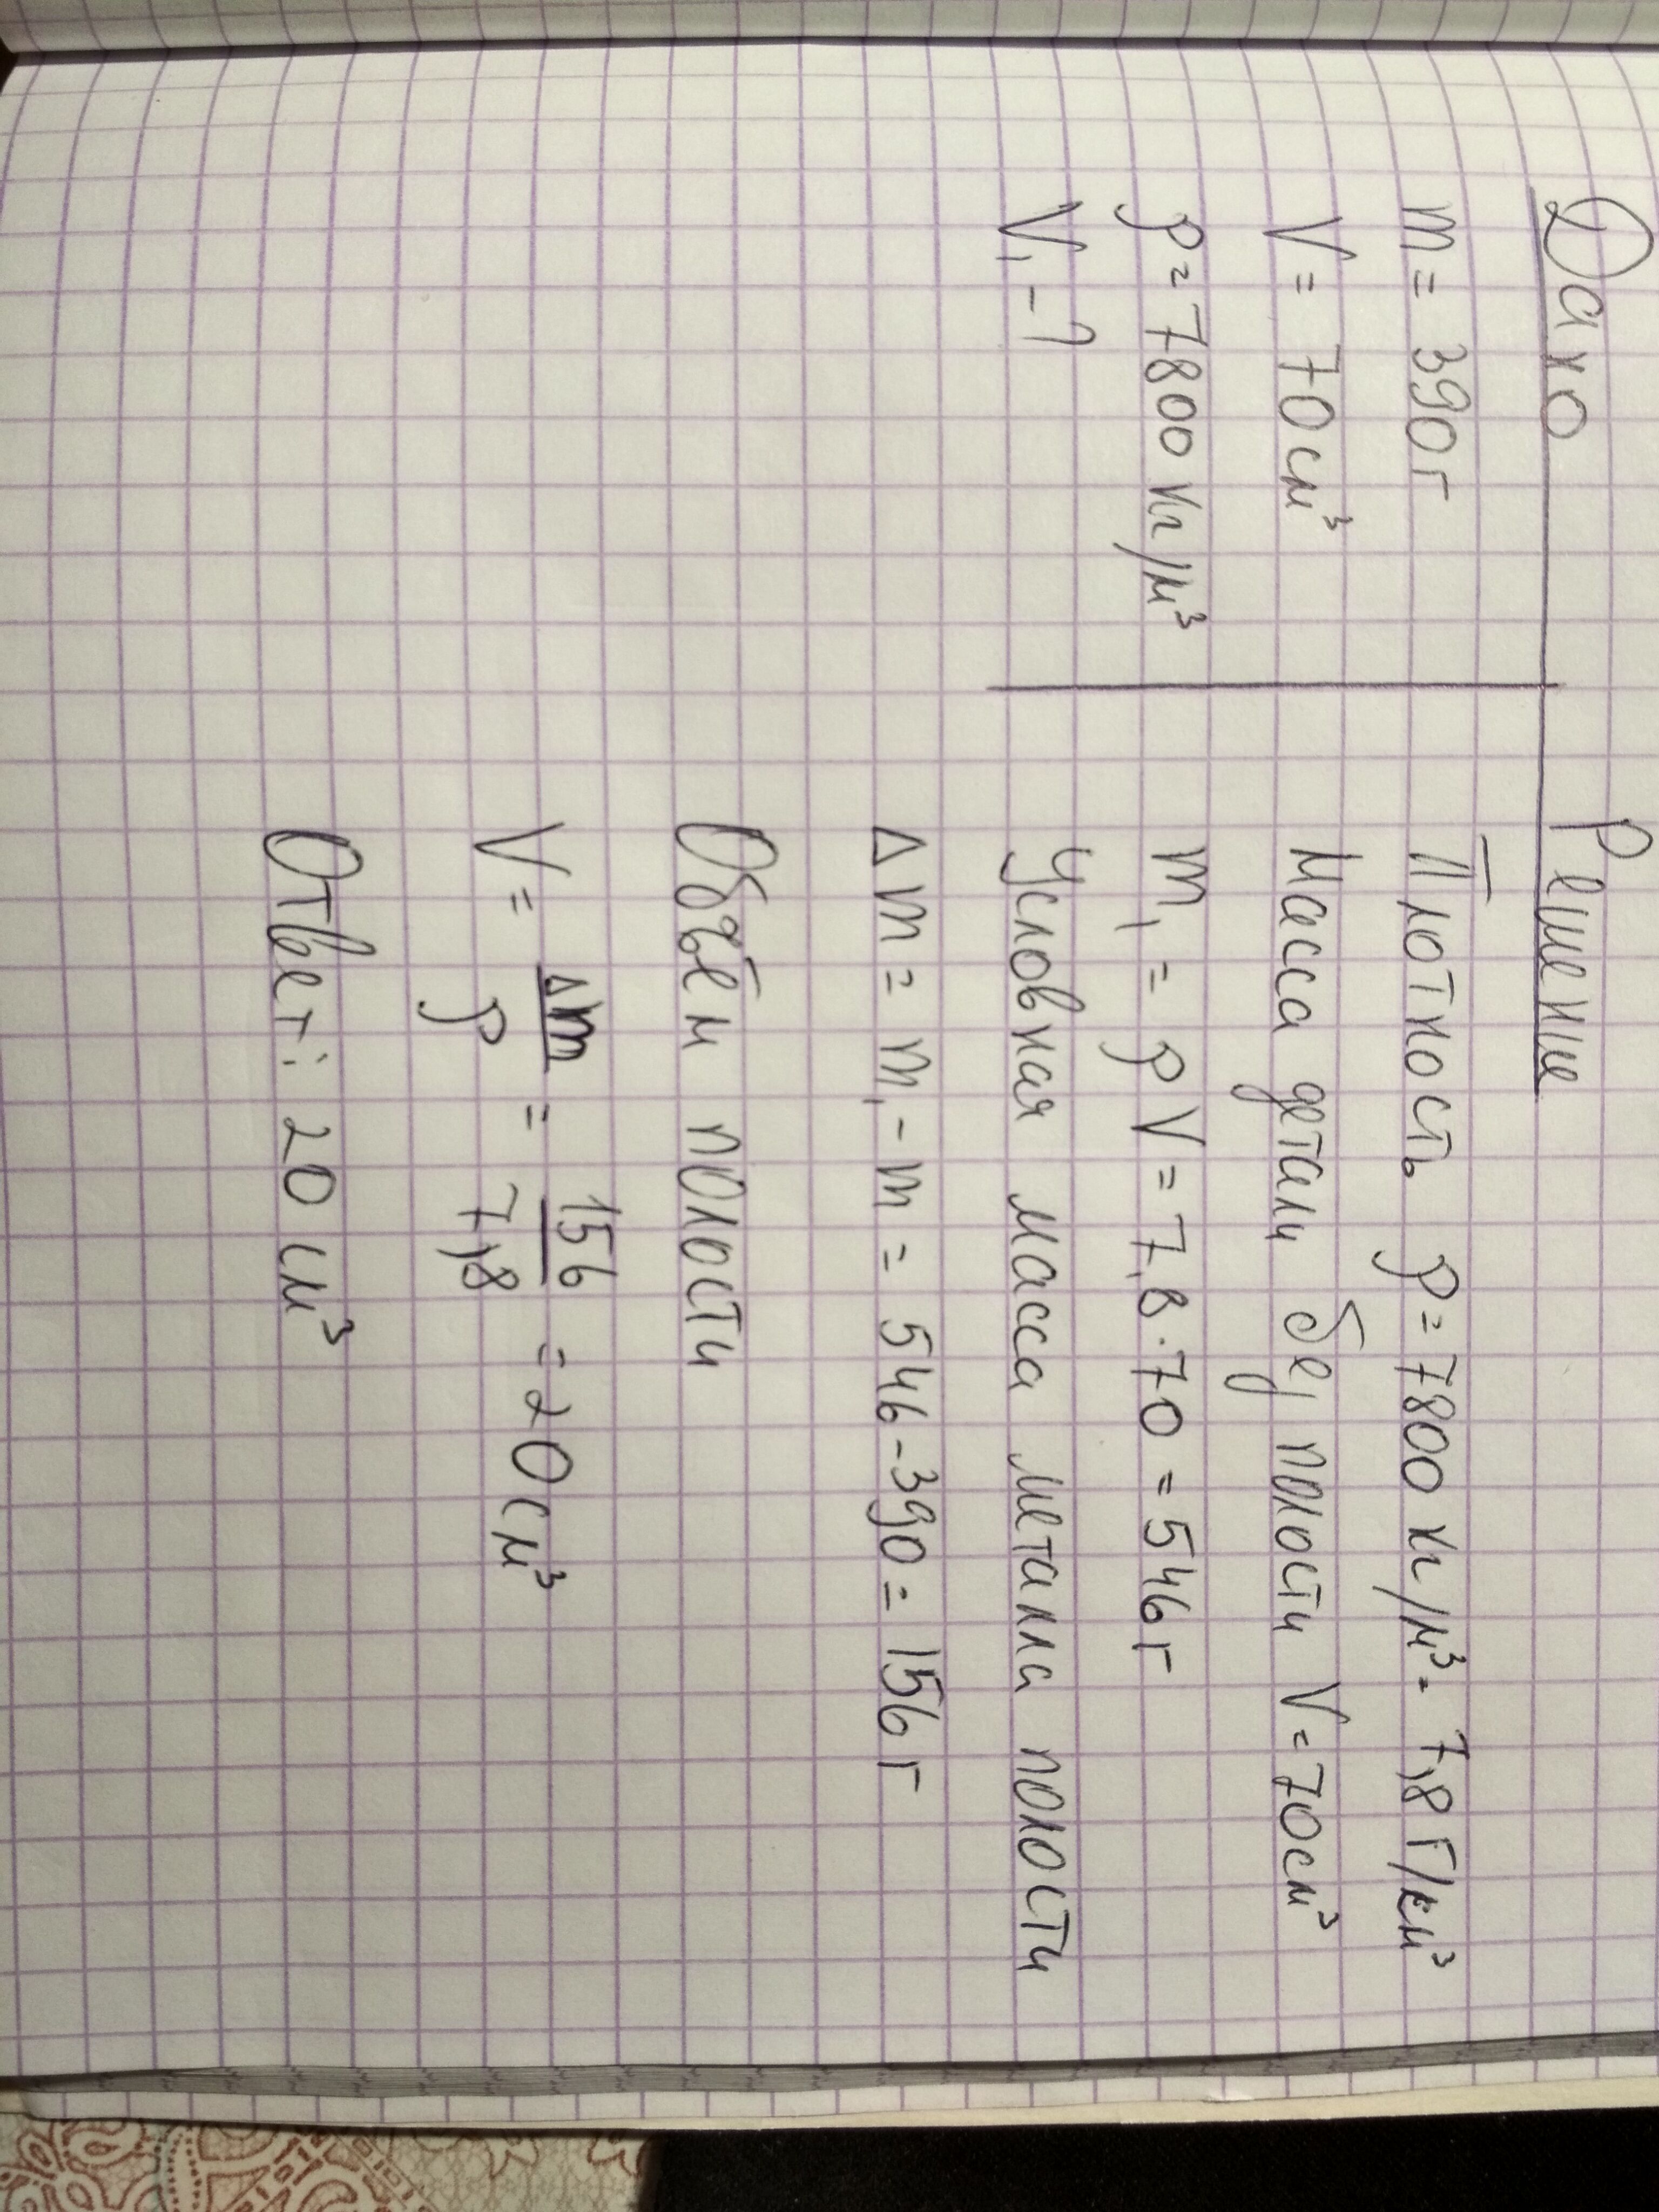 Дано
m = 390г
V = 70см³
ρ = 7800 кг/м³
V₁ - ?
Решение
Плотность ρ = 7800 кг/м³ = 7,8 Г/см³
Масса детали без полости V = 70см³
m₁ = ρV = 7,8 · 70 = 546г
Условная масса металла полости
Δm = m₁ - m = 546 - 390 = 156г
Объём полости
V = Δm/ρ = 156/7,8 = 20см³
Ответ: 20 см³